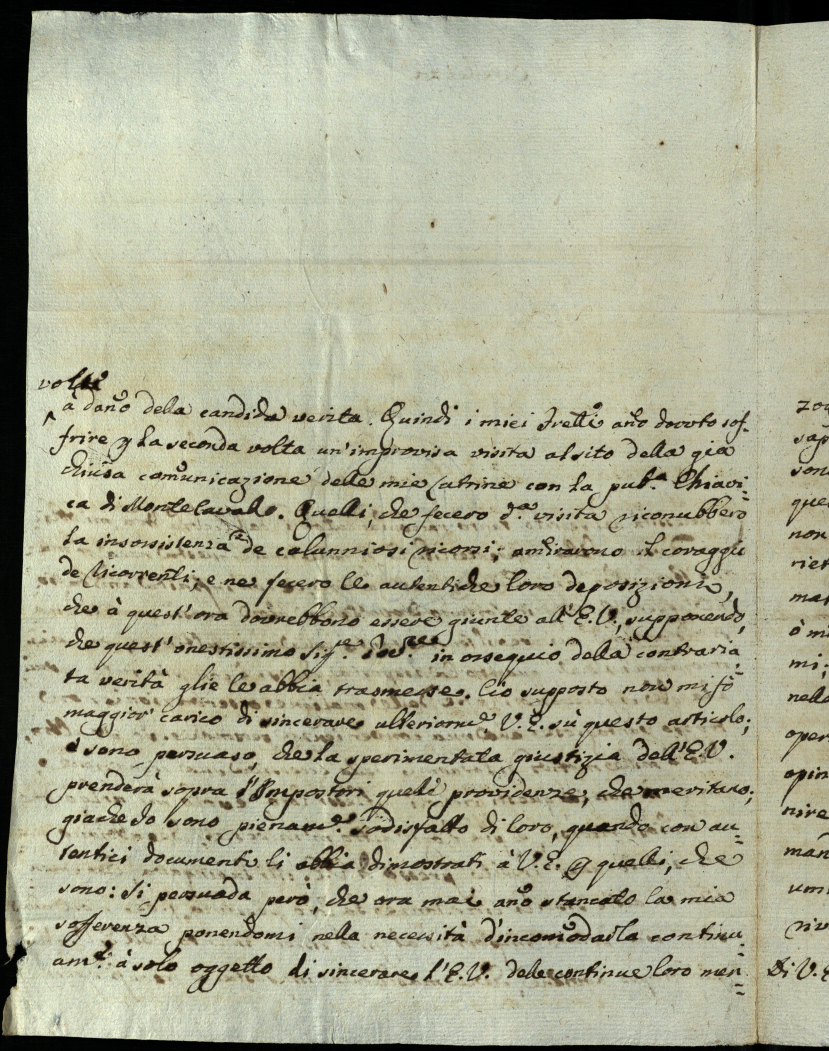 volte
à daño della candida verita. Quindi i miei Frelli año dovuto sof-
frire p la seconda volta un'improvisa visita al sito della già
chiusa comunicazione delle mie Latrine con la pub.ª Chiavi=
ca di Montecavallo. Quelli, che fecero d.ª visita riconubbero
la insossistenza de calunniosi ricorsi; amirarono il coraggio
de Ricorrenti; e ne fecero le autentiche loro deposizioni,
che à quest'ora dovrebbono essere giunte all'E.V., supponendo,
che quest'onestissimo Sig.re in ossequio della contraria=
ta verità glie le abbia trasmesse. Ciò supposto non mi fò
maggior carico di sincerare ulteriorm.e V.E. sù questo articolo;
e sono persuaso, che la sperimentata giustizia dell'E.V.
prenderà sopra l'Impostori quelli providenze, che meritano;
giacche Io sono pienam.e sodisfatto di loro, quando con au=
tentici documenti li abbia dimostrati à V.E. p quelli, che
sono: Si persuada però, che ora mai año stancato la mia
sofferenza ponendomi nella necessità d'incomodarla continu=
am.e à solo oggetto di sincerare l'E.V. delle continue loro men=
sap
que
non
mat
mi;
nella
oper
opin
nire
man
Di V.E